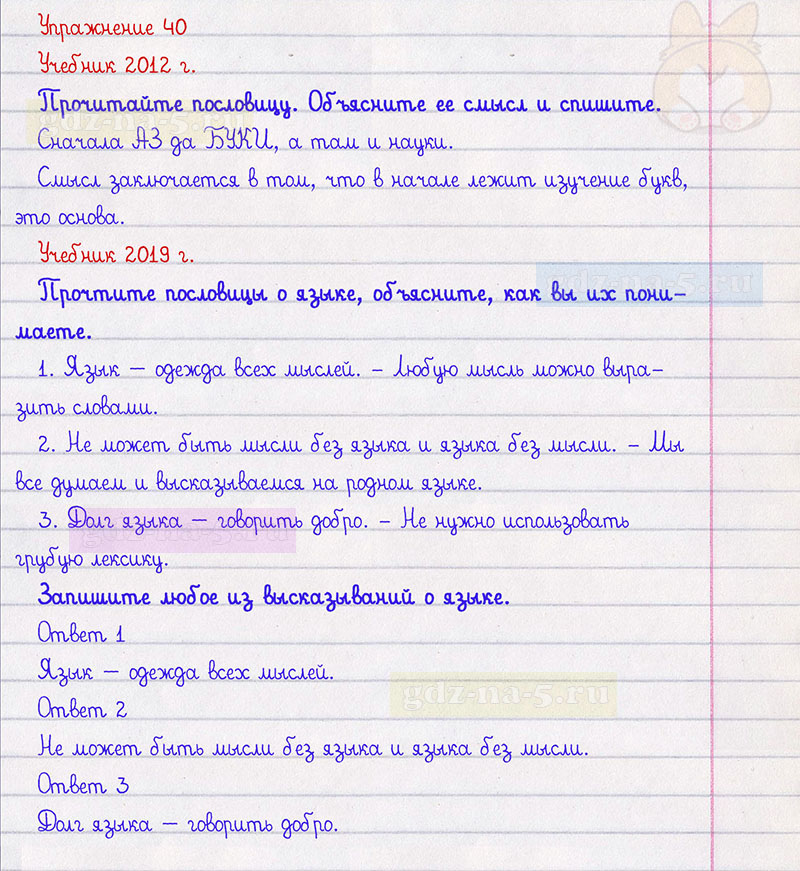 Упражнение 40
Учебник 2012 г.
Прочитайте пословицу. Объясните ее смысл и спишите.
gdz-na-5.ru
Сначала АЗ да БУКИ, а там и науки.
Смысл заключается в том, что в начале лежит изучение букв,
это основа.
Учебник 2019 г.
gdz-na-5.ru
Прочтите пословицы о языке, объясните, как вы их пони-
маете.
1. Язык – одежда всех мыслей. – Любую мысль можно выра-
зить словами.
2. Не может быть мысли без языка и языка без мысли. – Мы
все думаем и высказываемся на родном языке.
3. Долг языка – говорить добро. – Не нужно использовать
gdz-na-5.ru
грубую лексику.
Запишите любое из высказываний о языке.
Ответ 1
Язык – одежда всех мыслей.
gdz-na-5.ru
Ответ 2
Не может быть мысли без языка и языка без мысли.
Ответ 3
Долг языка – говорить добро.